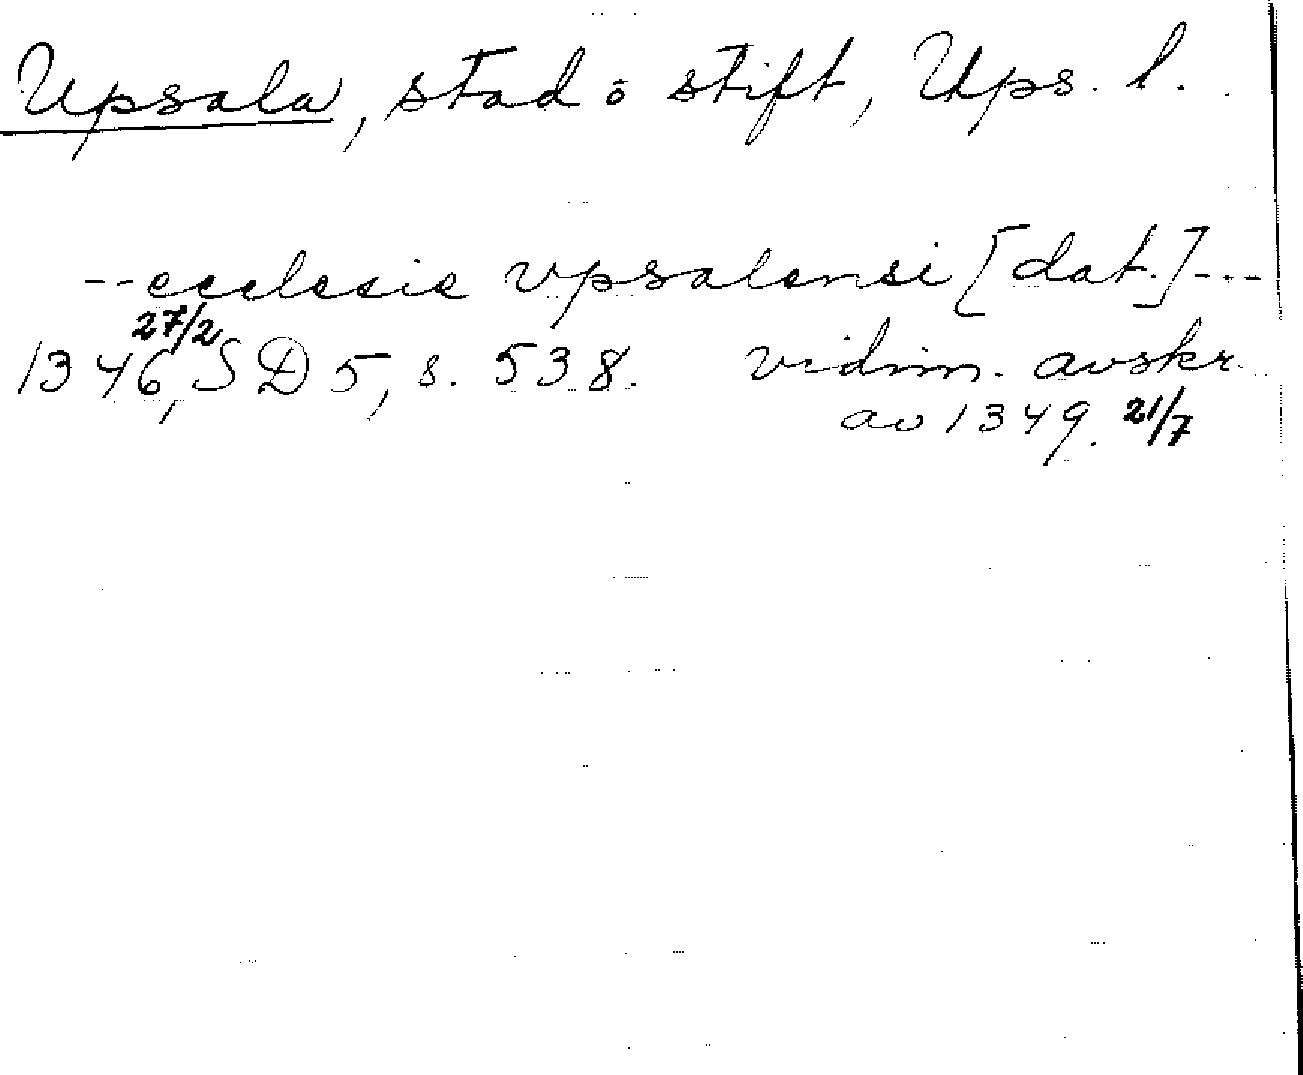 Upsala, stad o stift, Ups. l.
-- ecclesie vpsalensi [dat.] ---
27/2
1346, SD 5, s. 538. vidim. avskr.
av 1349. 21/7